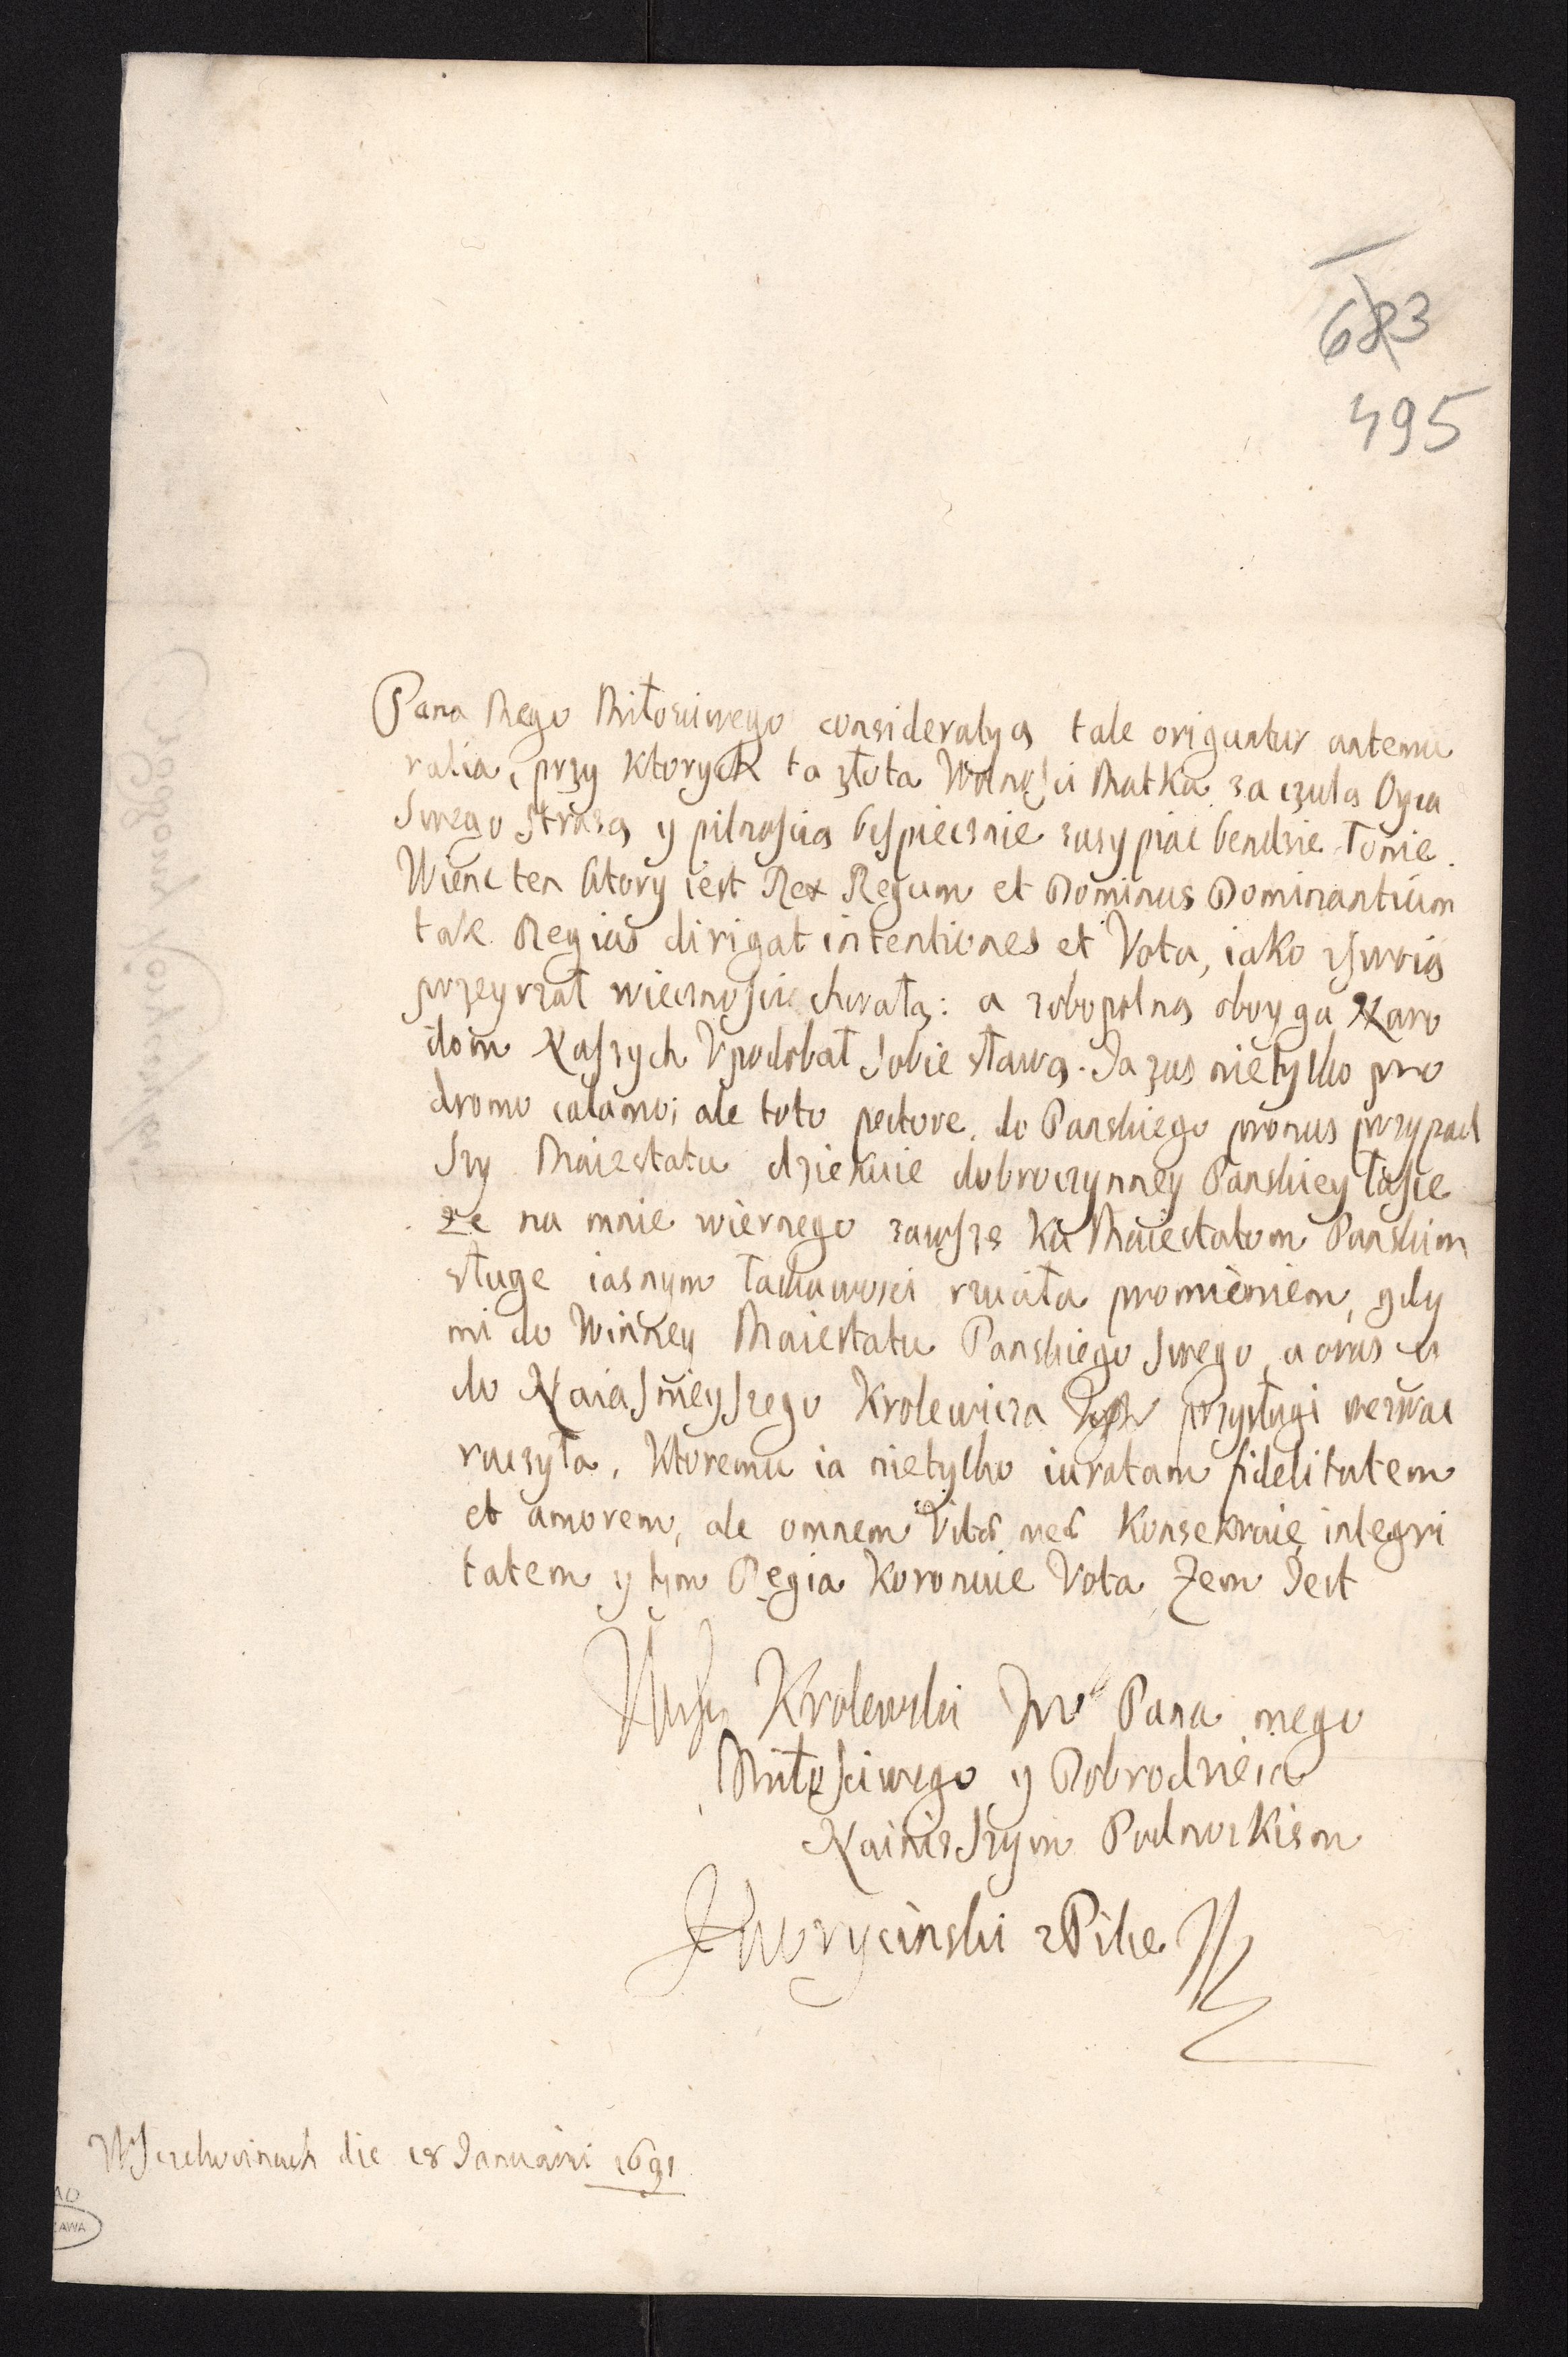 683
495
Pana Mego Miłosciwego consideratyą tale origuntur antemu
ralia, przy Ktorych ta złota Wolnosci Matka za czułą Oyca
Swego Strazą y pilnoscią bespiecznie zasypiac bendzie Łonie.
Wienc ten ktory iest Rex Regum et Dominus Dominantium
tak Regias dirigat intentiones et Vota, iako zswoią
przeyrzał wiecznosci chwałą: a zobopolną oboyga Naro
dom Naszych Vpodobał Sobie sławą. Ja zas nietylko pro
dromo calamo; ale toto pectore, do Panskiego pronus przypad
szy Maiestatu dziekuie dobroczynney Panskiey łasce
ze na mnie wiernego zawsze Ku Maiestatom Panskim
sługe iasnym łaskawosci rzuciła promieniem, gdy
mi do Winney Maiestatu Panskiego Swego, a oraz u
do Naiasnieyszego Krolewicza przysługi wezwac
raczyła, Ktoremu ia nietylko iuratam fidelitatem
et amorem, ale omnem Vitæ meæ Konsekruię integri
tatem y tym Regia Koronuie Vota Zem Jest
Waszey Krolewski Mci Pana mego
Miłosciwego y Dobrodzieia
Nainiszszym Podnozkiem
Zwyrycinski z Pilce
W Sczekocinach die 18 Januarii 1691